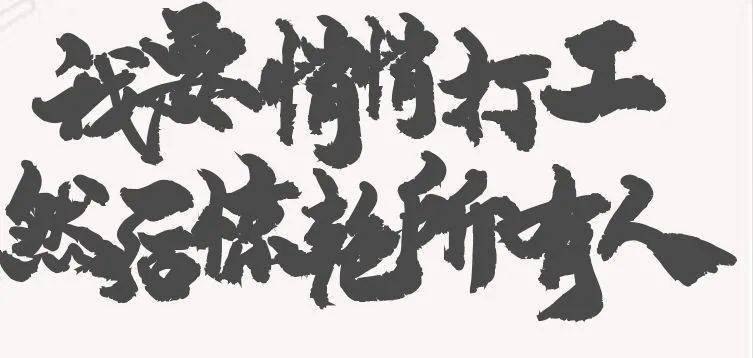 我要悄悄打工
然后惊艳所有人